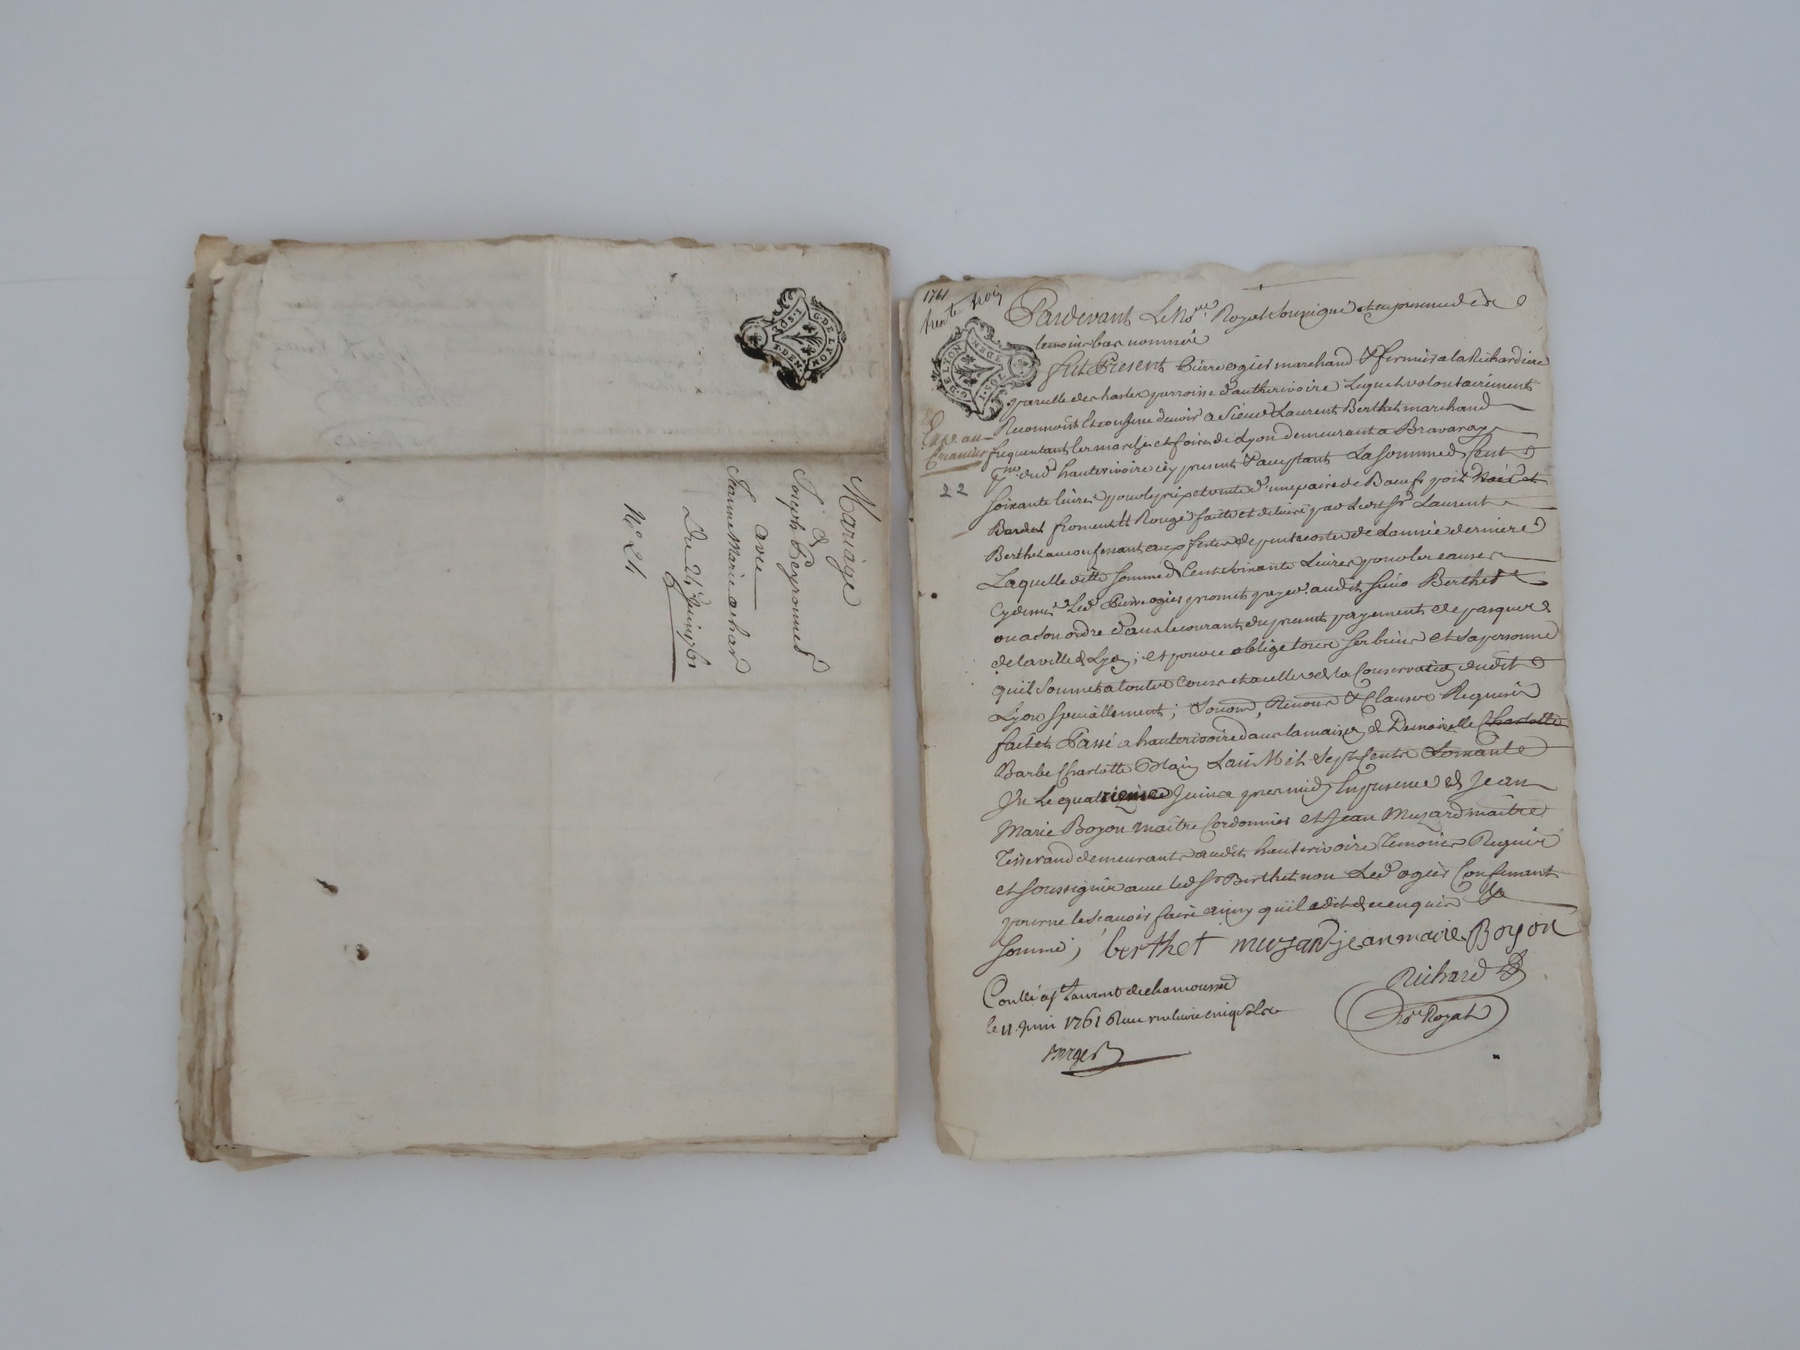 Mariage
de
Joseph Peyronnet
avec
Jeanne Marie achar
Du 2e Juin 1761
N° 21
G. DE LYON
1761
trente trois
G. DE LYON
Expé au
Créancier
22
Pardevant Le No.re Royal soussigné et en presence de
temoins bas nommés
fut Présent Pierre ogier marchand & fermier a la Richardiere
parcelle de chasles parroisse d'autherivoire Lequel volontairement
Reconnoit et confesse devoir a sieur Laurent Berthet marchand
frequentant les marchés et foires de Lyon demeurant a Bravaray
p.sse dud. hauterivoire icy present & acceptant La somme de Cent
soixante livres pour le prix et vente d'une paire de Bœufs poil
froment et Rouge faitte et delivré par Ledit Sr Laurent
Berthet au confessant aux festes de pentecoste de Lannée derniere
Laquelle ditte somme de Cent soixante Livres pour les causes
Cydessus Led. Pierre ogier promet payer audit sieur Berthet
ou a son ordre dans le courant du present payement de pasques
de la ville de Lyon; et pour ce oblige tous ses biens et sa personne
qu'il soumet a toutes Cours et a celle de la Conservation dudit
Lyon speciallement; Renonce & Clauses Requises
fait et Passé a hauterivoire dans la maison de Demoiselle Charlotte
Barbe Charlotte Blain Lan Mil Sept Cents soixante
Un Le quatrieme Juin a pres midy En presence de Jean
Marie Boyon maitre Cordonnier et Jean Muzard maitre
Tisserand demeurants audit hauterivoire Temoins Requis
et soussignés avec led. Sr Berthet non Led. ogier Confessant
pour ne le scavoir faire ainsy qu'il a dit de ce enquis &
sommé; berthet muzard jean marie Boyon
Richard
No.re Royal
Conllé a St Laurent de chamousset
le 11 Juin 1761 Reçu une livre cinq sols
Berger